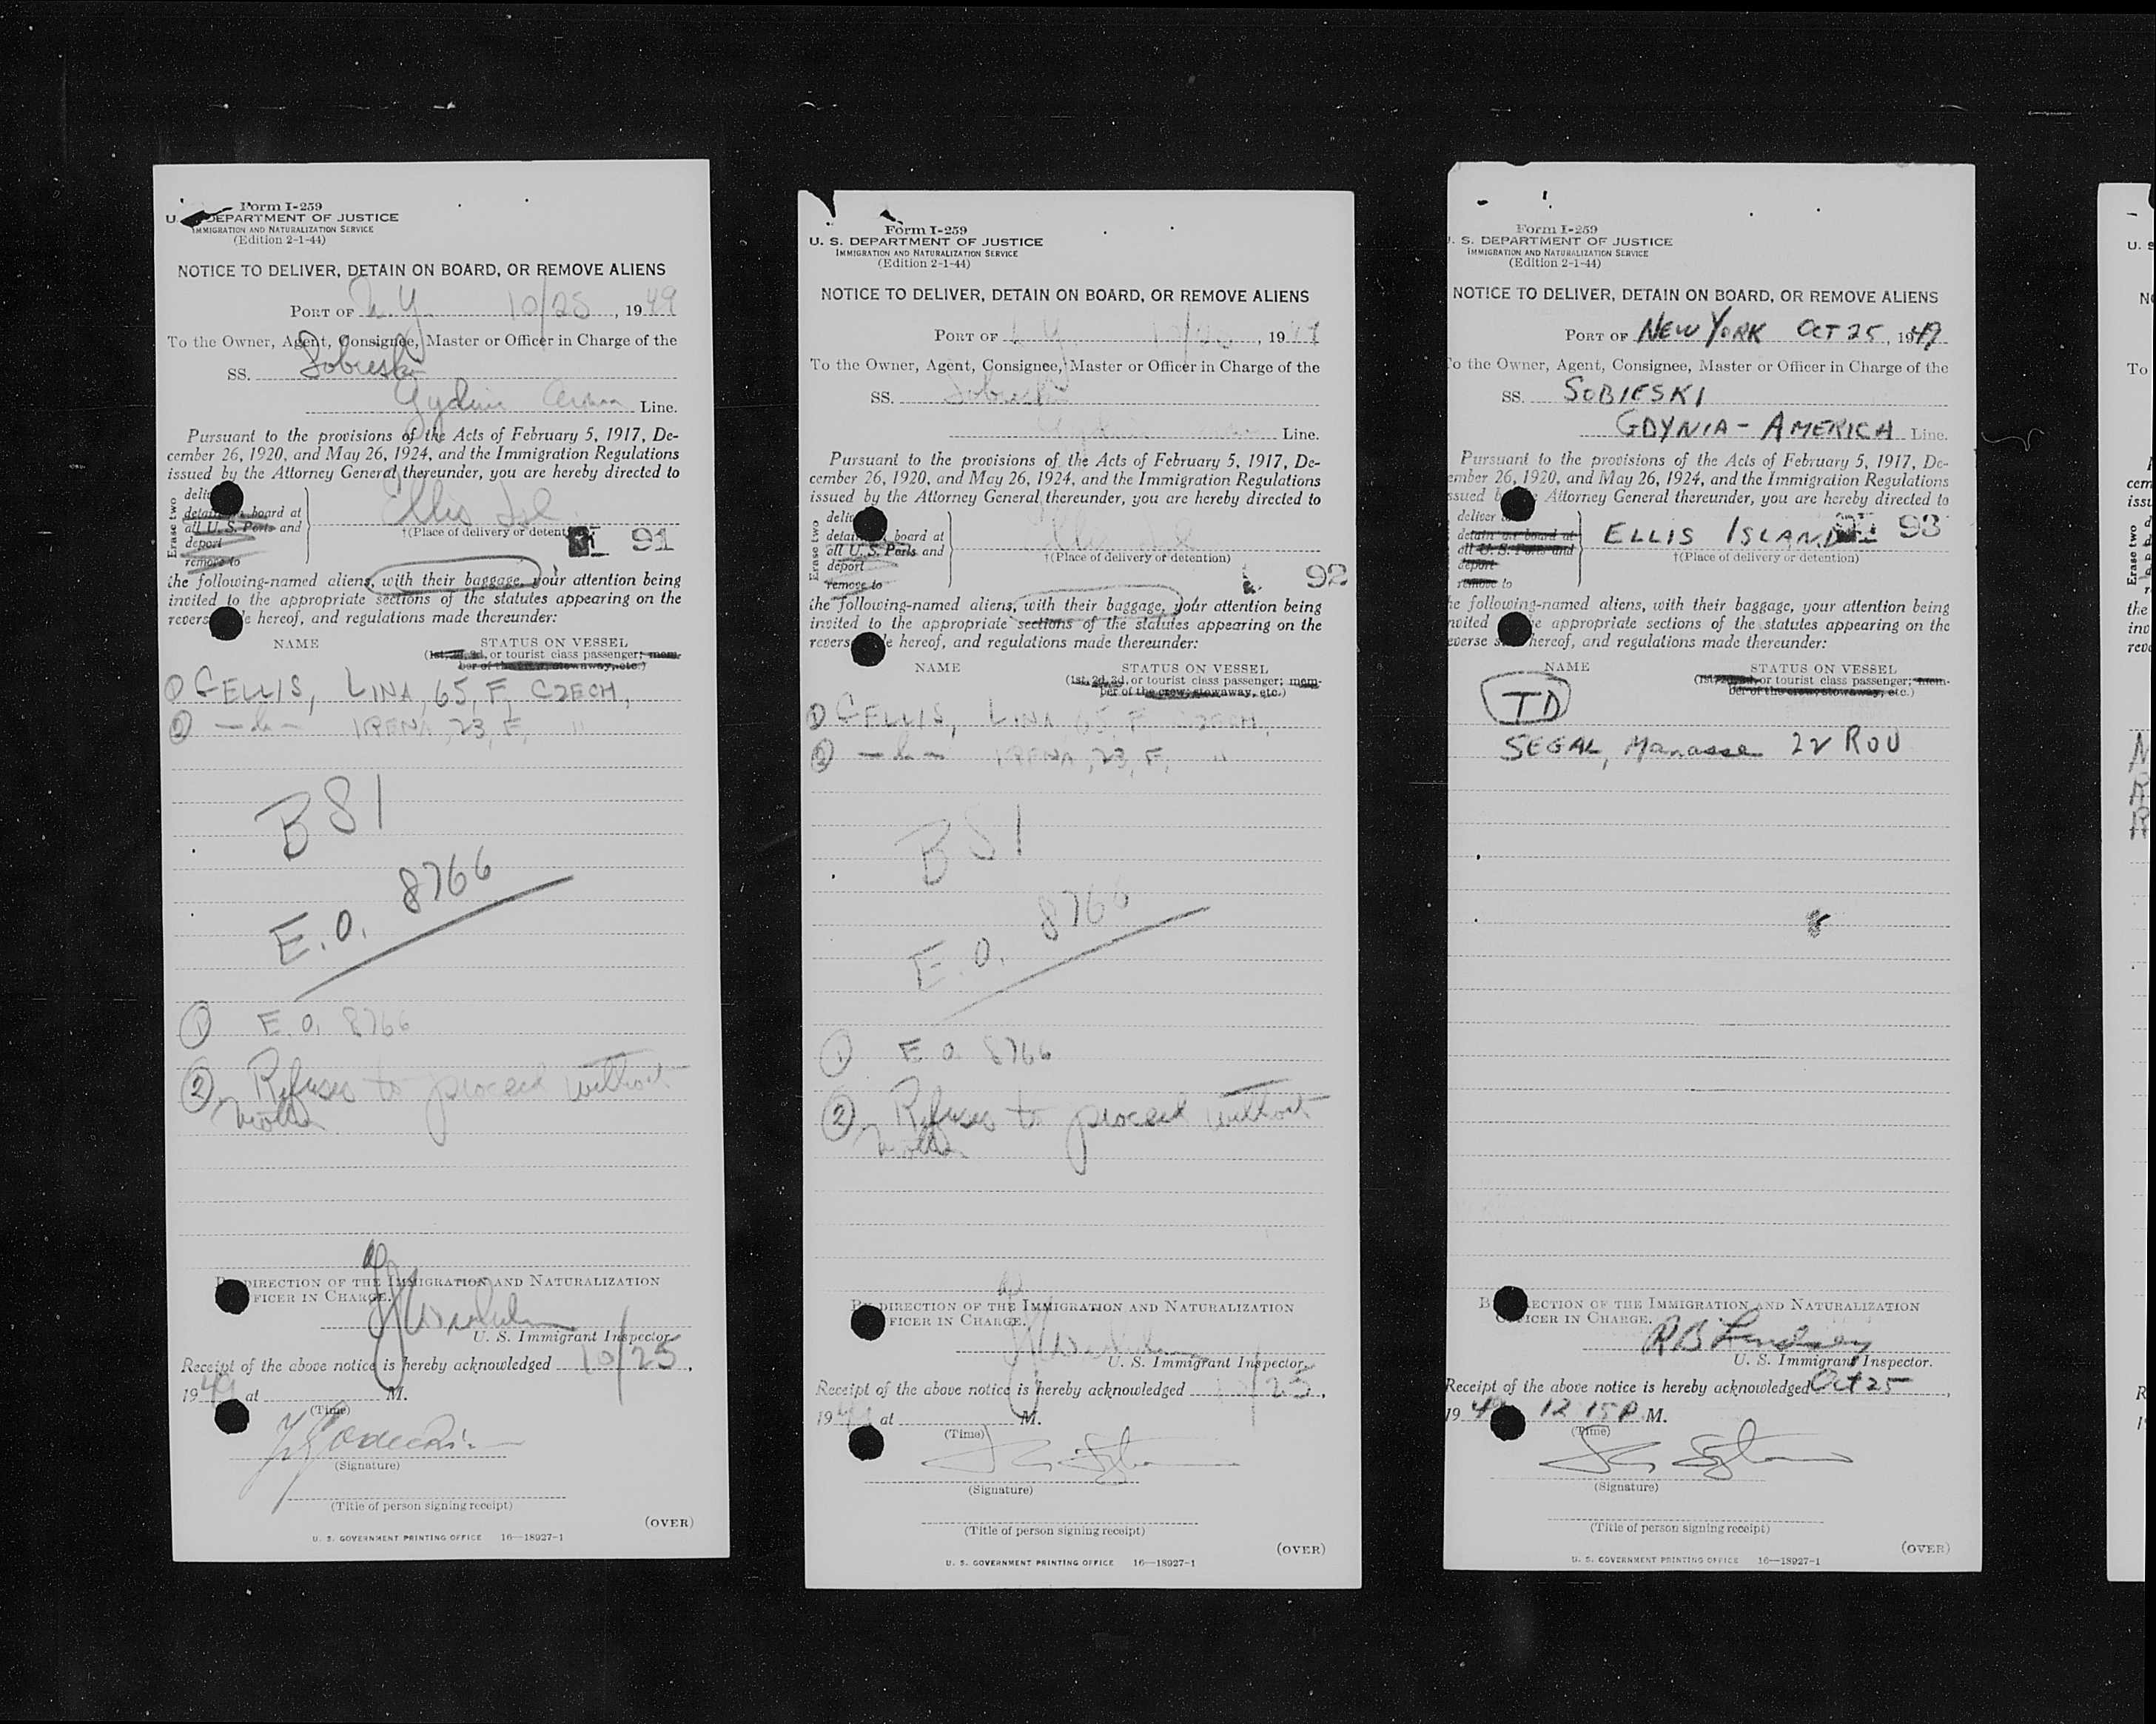 Form I-259
U. DEPARTMENT OF JUSTICE
IMMIGRATION AND NATURALIZATION SERVICE
(Edition 2-1-44)
NOTICE TO DELIVER, DETAIN ON BOARD, OR REMOVE ALIENS
PORT OF N.Y. 10/25, 1949
To the Owner, Agent, Consignee, Master or Officer in Charge of the
SS. Sobieski
Line.
Pursuant to the provisions of the Acts of February 5, 1917, De-
cember 26, 1920, and May 26, 1924, and the Immigration Regulations
issued by the Attorney General thereunder, you are hereby directed to
Erase two
board at
all U. S. Ports and
deport
remove to
Ellis Isl.
†(Place of delivery or detent
91
the following-named aliens, with their baggage, your attention being
invited to the appropriate sections of the statutes appearing on the
revers e hereof, and regulations made thereunder:
NAME STATUS ON VESSEL
(1st, 2d, 3d, or tourist class passenger; mem-
ber of the crew, stowaway, etc.)
① GELLIS, LINA, 65, F, CZECH,
② IRENA, 23, F, "
BSI
E.O. 8766
① E.O. 8766
② Refuses to proceed without
mother
DIRECTION OF THE IMMIGRATION AND NATURALIZATION
FICER IN CHARGE.
U. S. Immigrant Inspector.
Receipt of the above notice is hereby acknowledged 10/25,
1949 at M.
(Time)
(Signature)
(Title of person signing receipt)
(OVER)
U. S. GOVERNMENT PRINTING OFFICE 16—18927-1
Form I-259
U. S. DEPARTMENT OF JUSTICE
IMMIGRATION AND NATURALIZATION SERVICE
(Edition 2-1-44)
NOTICE TO DELIVER, DETAIN ON BOARD, OR REMOVE ALIENS
PORT OF N.Y. 10/25, 1949
To the Owner, Agent, Consignee, Master or Officer in Charge of the
SS. Sobieski
Line.
Pursuant to the provisions of the Acts of February 5, 1917, De-
cember 26, 1920, and May 26, 1924, and the Immigration Regulations
issued by the Attorney General thereunder, you are hereby directed to
Erase two
board at
all U. S. Ports and
deport
remove to
Ellis Isl
†(Place of delivery or detention)
92
the following-named aliens, with their baggage, your attention being
invited to the appropriate sections of the statutes appearing on the
revers e hereof, and regulations made thereunder:
NAME STATUS ON VESSEL
(1st, 2d, 3d, or tourist class passenger; mem-
ber of the crew, stowaway, etc.)
① GELLIS, LINA, 65, F, CZECH,
② IRENA, 23, F, "
BSI
E.O. 8766
① E.O. 8766
② Refuses to proceed without
mother
DIRECTION OF THE IMMIGRATION AND NATURALIZATION
FICER IN CHARGE.
U. S. Immigrant Inspector.
Receipt of the above notice is hereby acknowledged 10/25,
1949 at M.
(Time)
(Signature)
(Title of person signing receipt)
(OVER)
U. S. GOVERNMENT PRINTING OFFICE 16—18927-1
Form I-259
S. DEPARTMENT OF JUSTICE
IMMIGRATION AND NATURALIZATION SERVICE
(Edition 2-1-44)
NOTICE TO DELIVER, DETAIN ON BOARD, OR REMOVE ALIENS
PORT OF NEW YORK OCT 25, 1949
To the Owner, Agent, Consignee, Master or Officer in Charge of the
SS. SOBIESKI
GDYNIA-AMERICA Line.
Pursuant to the provisions of the Acts of February 5, 1917, De-
ember 26, 1920, and May 26, 1924, and the Immigration Regulations
ssued b Attorney General thereunder, you are hereby directed to
deliver
detain on board at
all U. S. Ports and
deport
remove to
ELLIS ISLAND
93
†(Place of delivery or detention)
he following-named aliens, with their baggage, your attention being
nvited e appropriate sections of the statutes appearing on the
everse s hereof, and regulations made thereunder:
NAME STATUS ON VESSEL
(1st, 2d, 3d, or tourist class passenger; mem-
ber of the crew, stowaway, etc.)
TD
SEGAL, Manasse 22 ROU
B ECTION OF THE IMMIGRATION AND NATURALIZATION
O ICER IN CHARGE.
RB Lindsey
U. S. Immigrant Inspector.
Receipt of the above notice is hereby acknowledged Oct 25,
1949 12 15 P. M.
(Time)
(Signature)
(Title of person signing receipt)
(OVER)
U. S. GOVERNMENT PRINTING OFFICE 16—18927-1
U. S
To
cem
issu
Erase two
the
inv